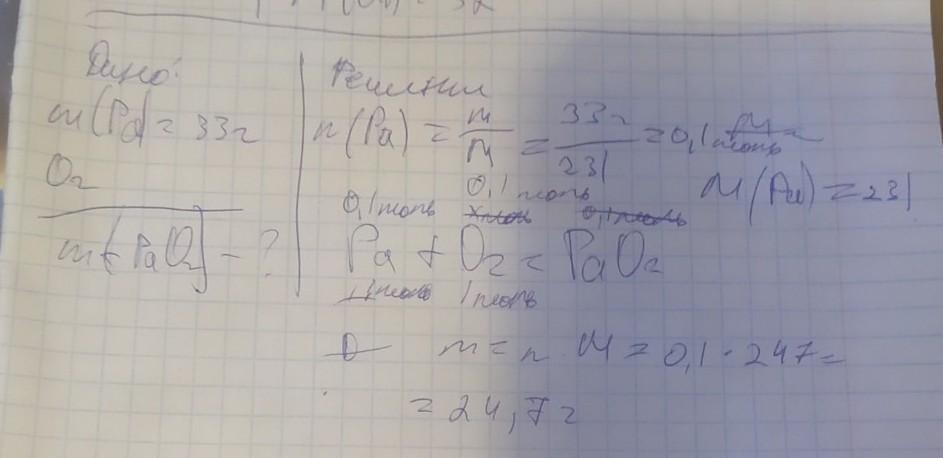 Дано:
m(Pa) = 33г
O₂
m(PaO₂) - ?
Решение
n(Pa) = m/M = 33г/231 = 0,1 моль
M(Pa) = 231
0,1 моль 0,1 моль
Pa + O₂ = PaO₂
1 моль 1 моль
m = n · M = 0,1 · 247 =
= 24,7г